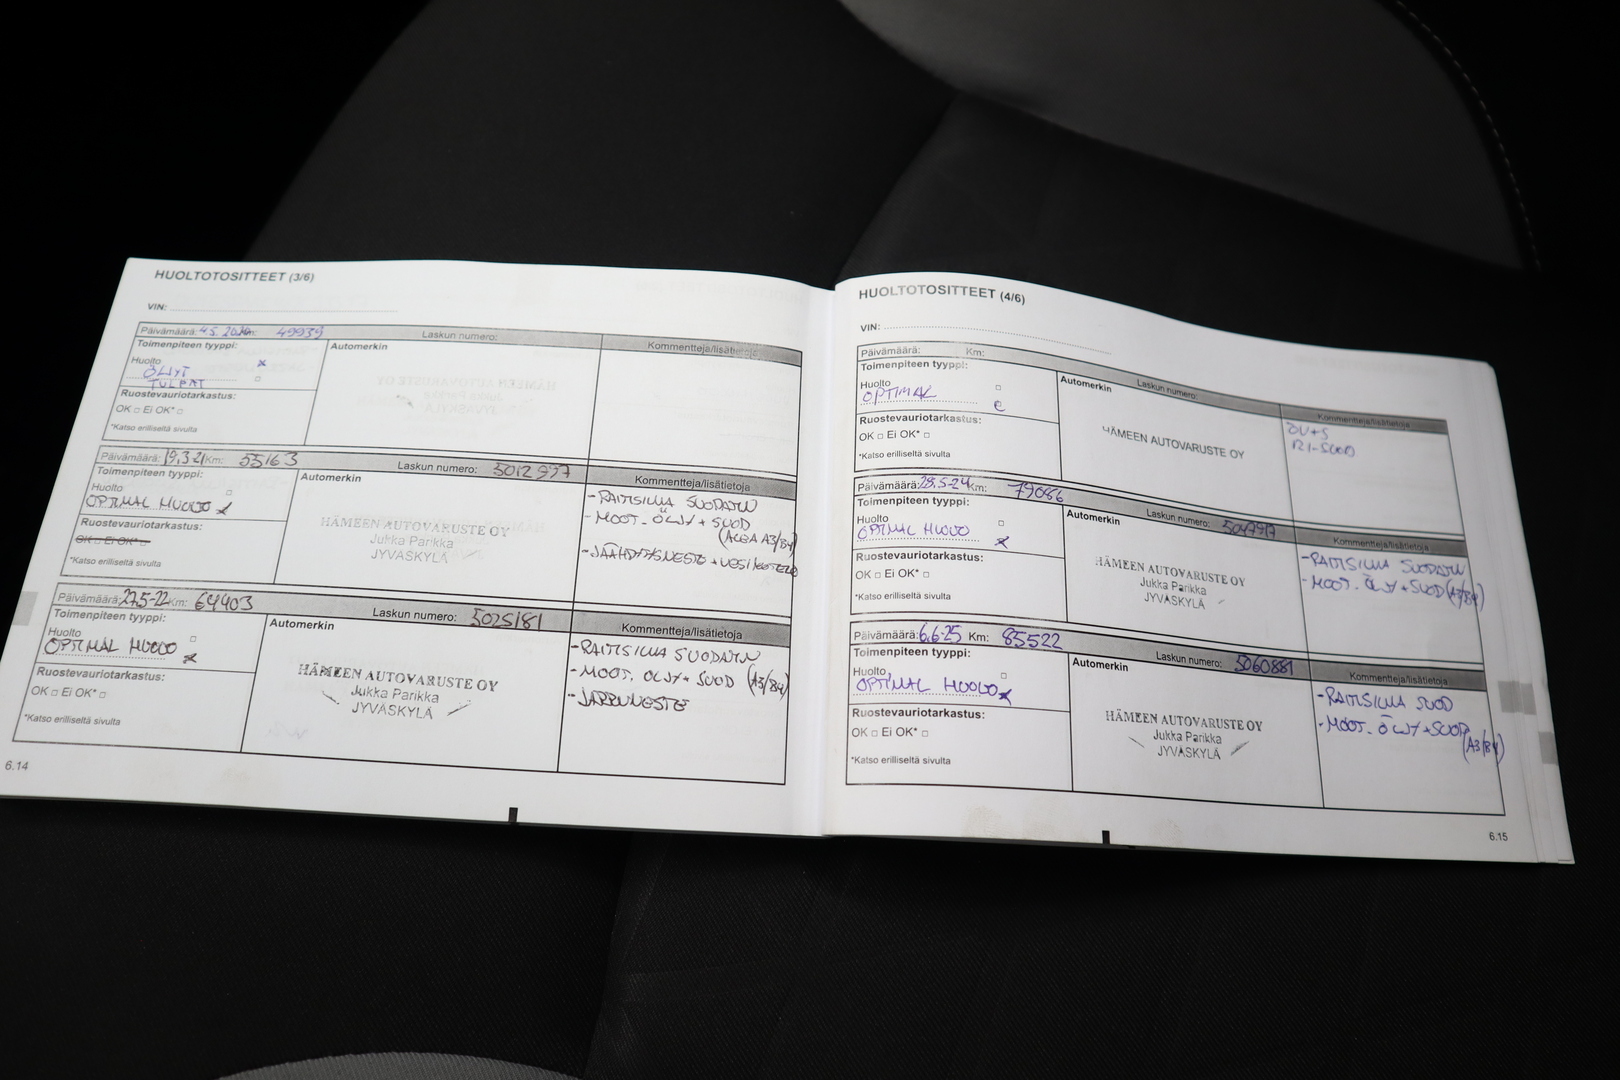 HUOLTOTOSITTEET (3/6)
VIN:
Päivämäärä: 4.5.2020 Km: 49939 Laskun numero: Kommentteja/lisätietoja
Toimenpiteen tyyppi: Automerkin
Huolto x
ÖLJYT
TULPAT
Ruostevauriotarkastus:
OK □ Ei OK* □
*Katso erilliseltä sivulta
Päivämäärä: 19.3-21 Km: 55163 Laskun numero: 5012957 Kommentteja/lisätietoja
Toimenpiteen tyyppi: Automerkin
Huolto
OPTIMAL HUOLTO x
Ruostevauriotarkastus:
OK □ Ei OK* □
*Katso erilliseltä sivulta
HÄMEEN AUTOVARUSTE OY
Jukka Parikka
JYVÄSKYLÄ
-RAITISILMA SUODATIN
-MOOT. ÖLJY + SUOD
(ACEA A3/B4)
-JÄÄHDYTYSNESTE +
Päivämäärä: 27.5-22 Km: 64403 Laskun numero: 5025181 Kommentteja/lisätietoja
Toimenpiteen tyyppi: Automerkin
Huolto
OPTIMAL HUOLTO x
Ruostevauriotarkastus:
OK □ Ei OK* □
*Katso erilliseltä sivulta
HÄMEEN AUTOVARUSTE OY
Jukka Parikka
JYVÄSKYLÄ
-RAITISILMA SUODATIN
-MOOT. ÖLJY + SUOD (A3/B4)
-JARRUNESTE
6.14
HUOLTOTOSITTEET (4/6)
VIN:
Päivämäärä: Km: Laskun numero: Kommentteja/lisätietoja
Toimenpiteen tyyppi: Automerkin
Huolto
OPTIMAL
Ruostevauriotarkastus:
OK □ Ei OK* □
*Katso erilliseltä sivulta
HÄMEEN AUTOVARUSTE OY
ÖV+S
RI-SUOD
Päivämäärä: 28.5-24 Km: 79086 Laskun numero: 5047717 Kommentteja/lisätietoja
Toimenpiteen tyyppi: Automerkin
Huolto
OPTIMAL HUOLTO x
Ruostevauriotarkastus:
OK □ Ei OK* □
*Katso erilliseltä sivulta
HÄMEEN AUTOVARUSTE OY
Jukka Parikka
JYVÄSKYLÄ
-RAITISILMA SUODATIN
-MOOT. ÖLJY + SUOD (A3/B4)
Päivämäärä: 6.6-25 Km: 85522 Laskun numero: 5060881 Kommentteja/lisätietoja
Toimenpiteen tyyppi: Automerkin
Huolto
OPTIMAL HUOLTO x
Ruostevauriotarkastus:
OK □ Ei OK* □
*Katso erilliseltä sivulta
HÄMEEN AUTOVARUSTE OY
Jukka Parikka
JYVÄSKYLÄ
-RAITISILMA SUOD
-MOOT. ÖLJY + SUOD
(A3/B4)
6.15